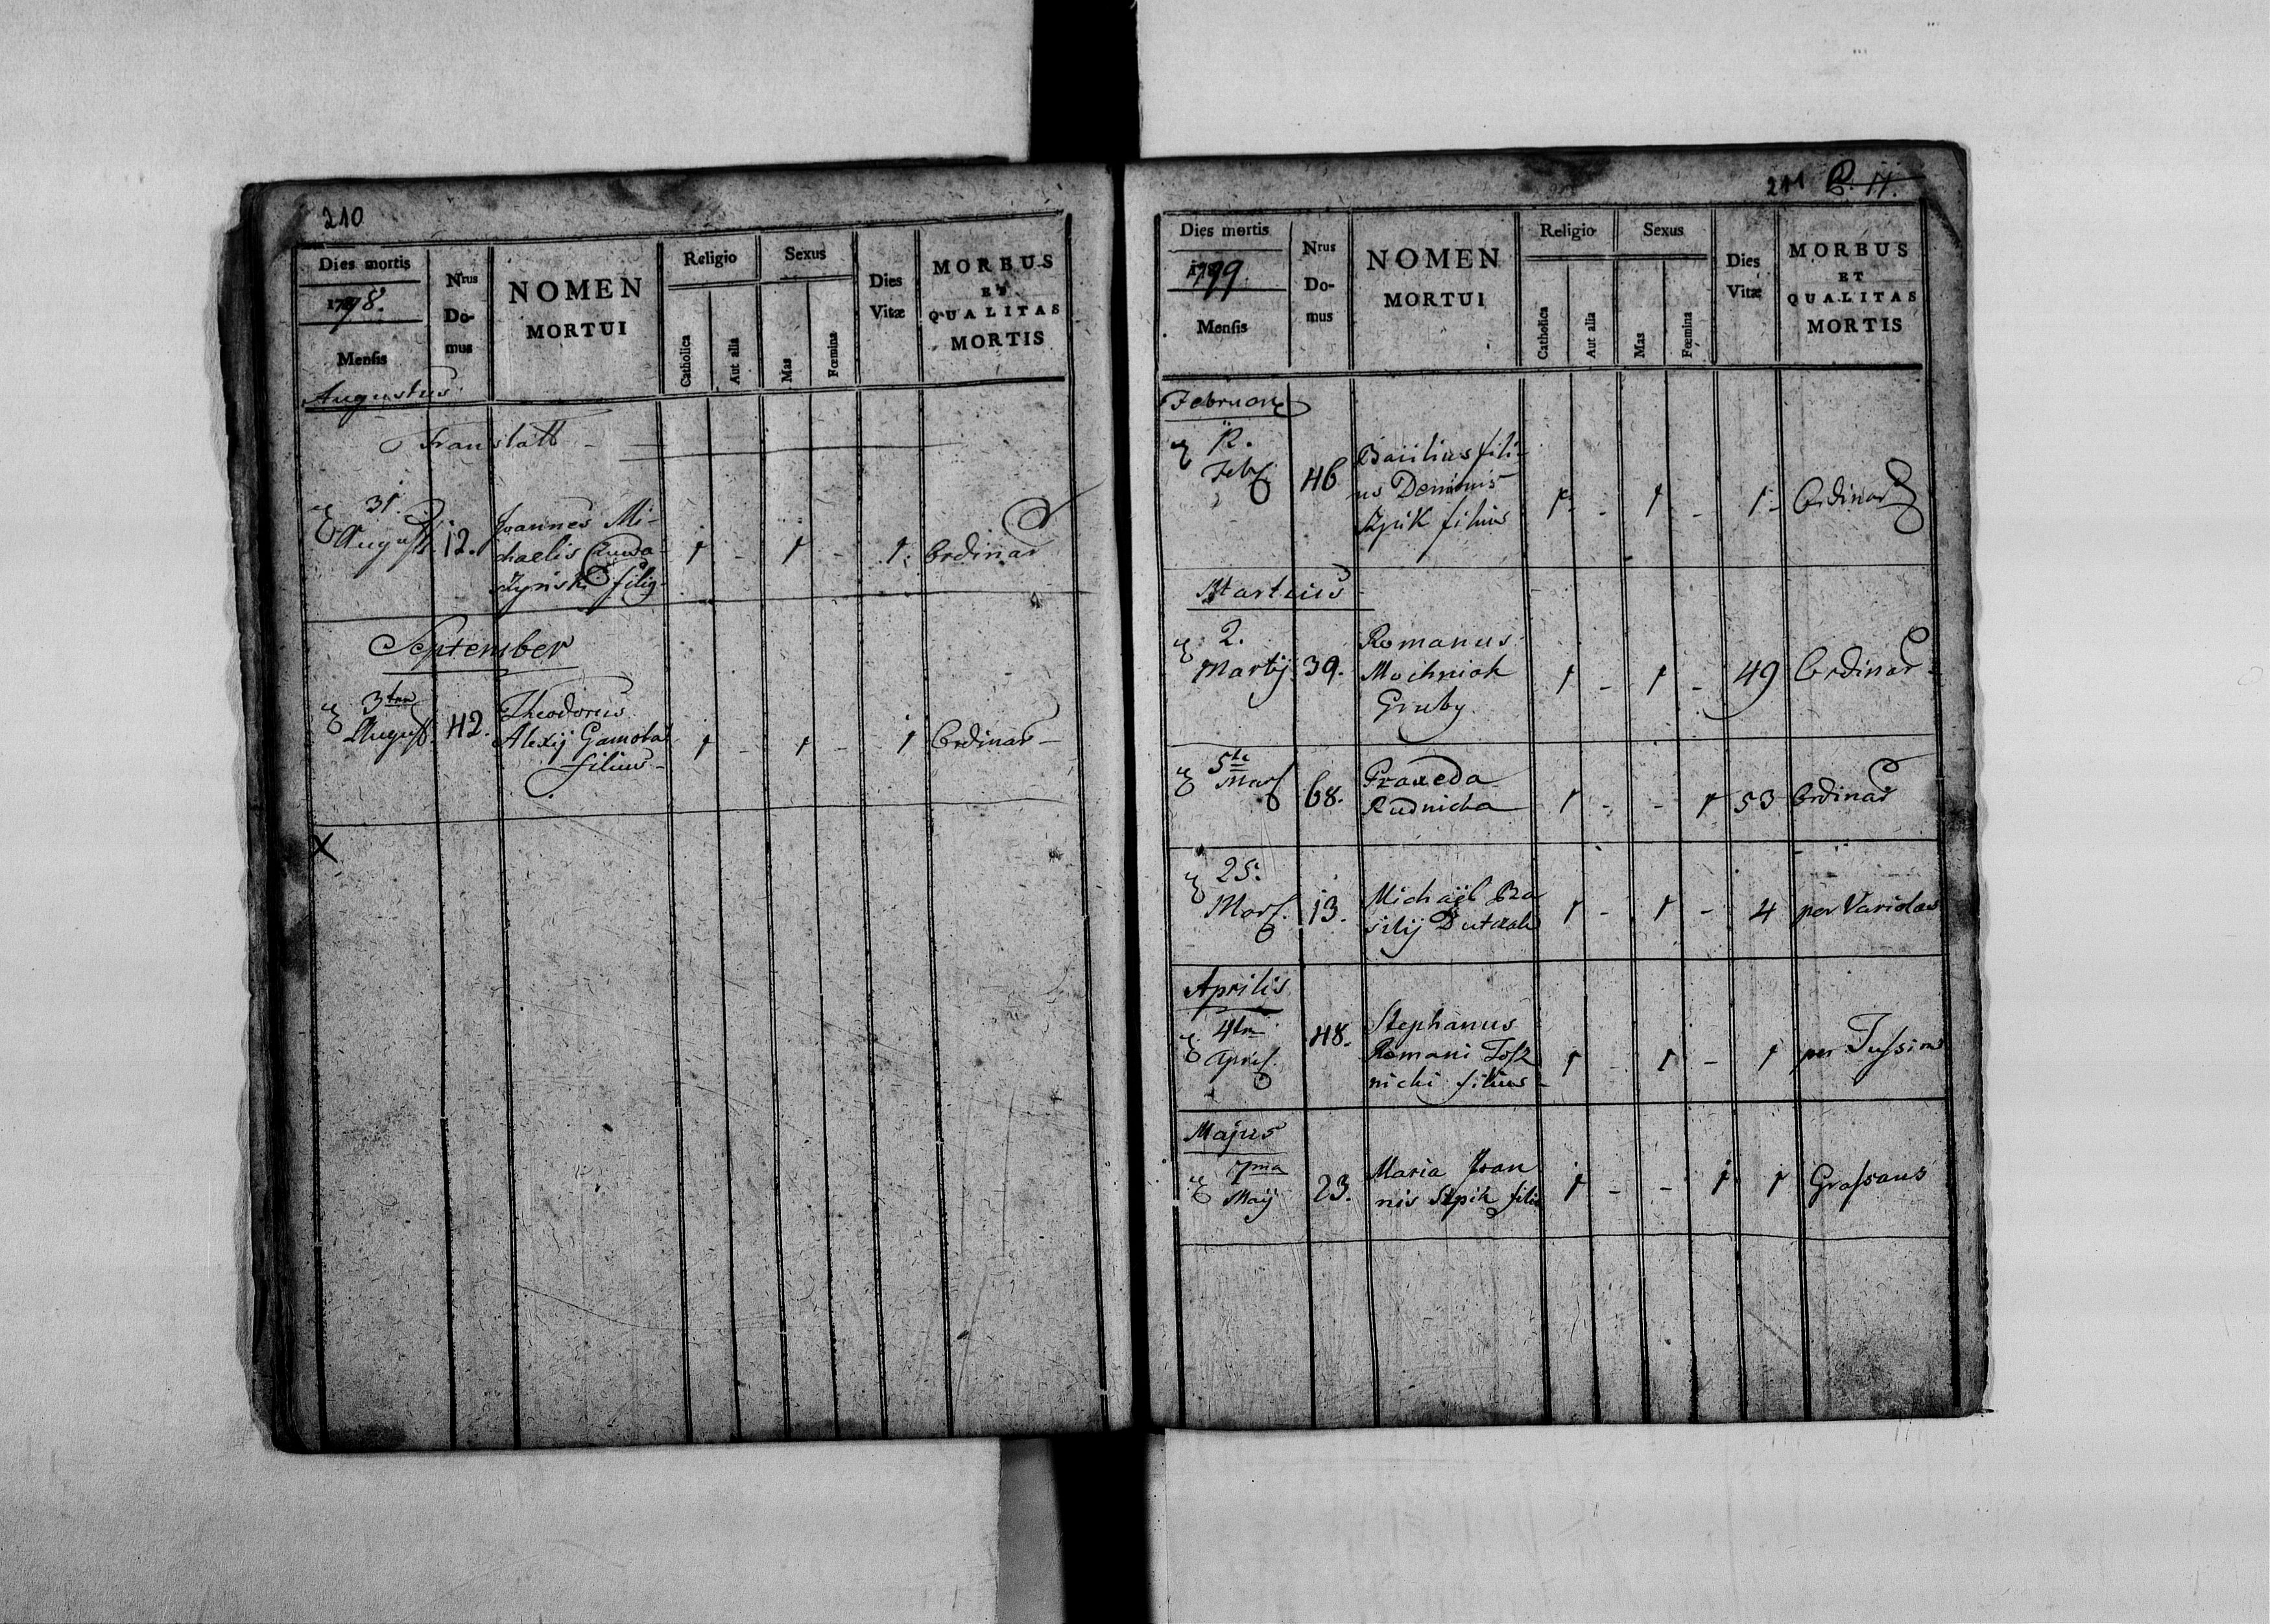 210
Dies mortis
1798.
Mensis
Augustus
Nrus
Do-
mus
NOMEN
MORTUI
Religio
Catholica
Aut alia
Sexus
Mas
Fœmina
Dies
Vitæ
MORBUS
ET
QUALITAS
MORTIS
31.
August
12.
Joannes Mi-
chaelis
filiq
1 - 1 - 1. Ordinar
September
3
August
42.
Theodorus
Alexij
filius
1 - 1 - 1 Ordinar
X
211
Dies mortis
1799.
Mensis
Nrus
Do-
mus
NOMEN
MORTUI
Religio
Catholica
Aut alia
Sexus
Mas
Fœmina
Dies
Vitæ
MORBUS
ET
QUALITAS
MORTIS
12.
Feb
46
Basilius fili-
us
filius
1 - 1 - 1 - Ordinar
Martius
2.
Martij
39.
Romanus
Mochniak
Gruby
1 - 1 - 49 Ordinar
5
Mar
68.
Praxeda
Rudnicka
1 - - 1 53 Ordinar
25.
Mar
13.
Michael Ba
silij
1 - 1 - 4 per Variolas
Aprilis
4
April
48.
Stephanus
Romani
nicki filius
1 - 1 - 1 per Tussim
Majus
7ma
Maij
23.
Maria Joan
nis filia
1 - - 1 1 Grassans